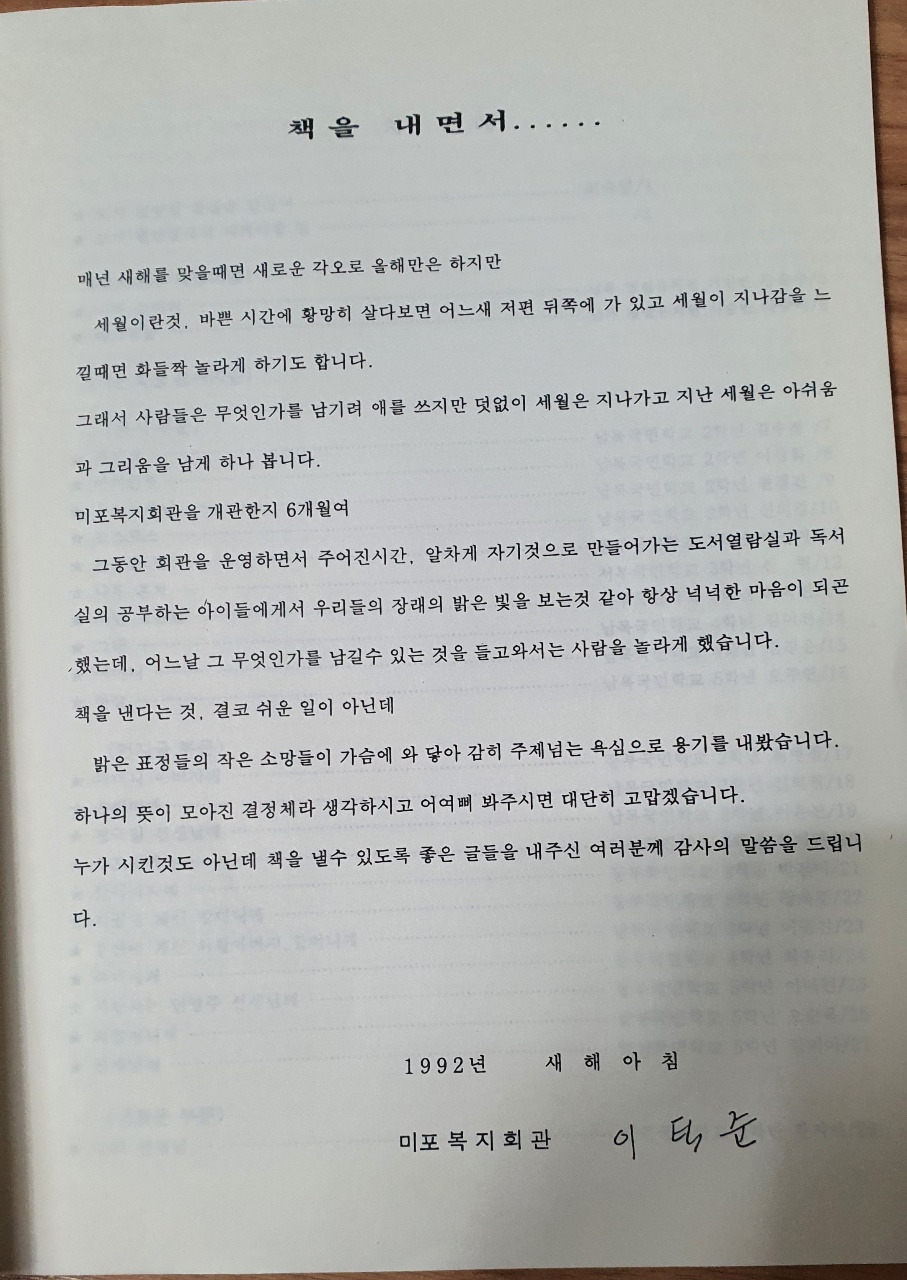 책을 내면서......
매년 새해를 맞을때면 새로운 각오로 올해만은 하지만
세월이란것, 바쁜 시간에 황망히 살다보면 어느새 저편 뒤쪽에 가 있고 세월이 지나감을 느
낄때면 화들짝 놀라게 하기도 합니다.
그래서 사람들은 무엇인가를 남기려 애를 쓰지만 덧없이 세월은 지나가고 지난 세월은 아쉬움
과 그리움을 남게 하나 봅니다.
미포복지회관을 개관한지 6개월여
그동안 회관을 운영하면서 주어진시간, 알차게 자기것으로 만들어가는 도서열람실과 독서
실의 공부하는 아이들에게서 우리들의 장래의 밝은 빛을 보는것 같아 항상 넉넉한 마음이 되곤
했는데, 어느날 그 무엇인가를 남길수 있는 것을 들고와서는 사람을 놀라게 했습니다.
책을 낸다는 것, 결코 쉬운 일이 아닌데
밝은 표정들의 작은 소망들이 가슴에 와 닿아 감히 주제넘는 욕심으로 용기를 내봤습니다.
하나의 뜻이 모아진 결정체라 생각하시고 어여삐 봐주시면 대단히 고맙겠습니다.
누가 시킨것도 아닌데 책을 낼수 있도록 좋은 글들을 내주신 여러분께 감사의 말씀을 드립니
다.
1992년 새 해 아 침
미포복지회관 이택준